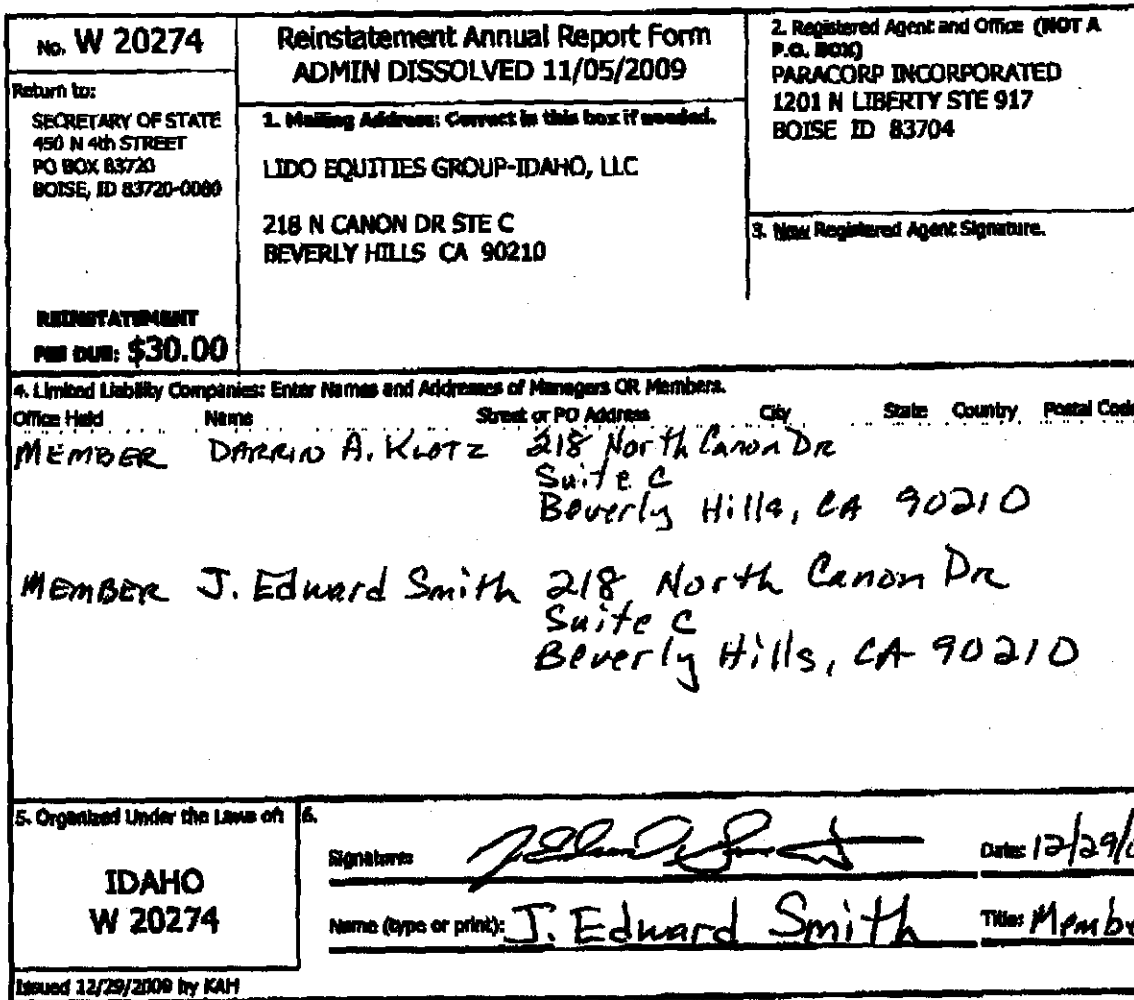 No. W 20274
Return to:
SECRETARY OF STATE
450 N 4th STREET
PO BOX 83720
BOISE, ID 83720-0080
REINSTATEMENT
FEE DUE: $30.00
Reinstatement Annual Report Form
ADMIN DISSOLVED 11/05/2009
1. Mailing Address: Correct in this box if needed.
LIDO EQUITIES GROUP-IDAHO, LLC
218 N CANON DR STE C
BEVERLY HILLS CA 90210
2. Registered Agent and Office (NOT A
P.O. BOX)
PARACORP INCORPORATED
1201 N LIBERTY STE 917
BOISE ID 83704
3. New Registered Agent Signature.
4. Limited Liability Companies: Enter Names and Addresses of Managers OR Members.
Office Held Name Street or PO Address City State Country Postal Code
MEMBER DARRIN A. KLOTZ 218 North Canon Dr
Suite C
Beverly Hills, CA 90210
MEMBER J. Edward Smith 218 North Canon Dr
Suite C
Beverly Hills, CA 90210
5. Organized Under the Laws of:
IDAHO
W 20274
6.
Signature Date: 12/29/0
Name (type or print): J. Edward Smith Title: Membe
Issued 12/29/2009 by KAH